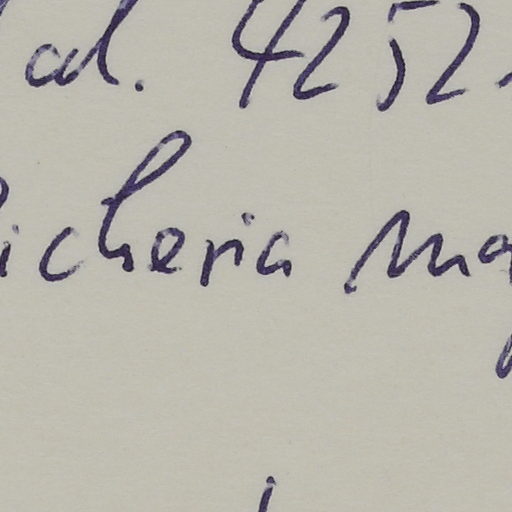 ad. 4252
icheria